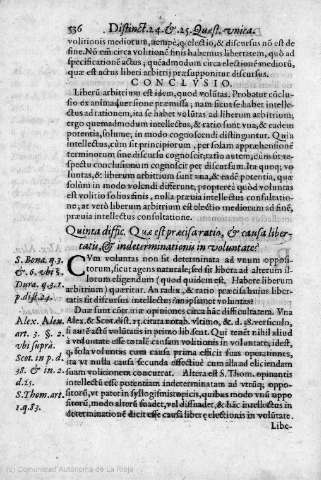 536 Distinct. 24. & 25. Quæst. vnica.
volitionis mediorum, nempè, q electio, & discursus nō est de
fine. Nō em̃ circa volitionē finis habemus libertatem, quò ad
specificationē actus; quéadmodum circa electionē mediorū,
quæ est actus liberi arbitrij præsupponitur discursus.
CONCLVSIO.
Liberū arbitrium est idem, quod volūtas. Probatur cōclu-
sio ex
intel-
lectus ad rationem, ita se habet volūtas ad liberum arbitrium,
ergo quemadmodum intellectus, & ratio sunt vna, & eadem
potentia, solum, in modo cognoscendi distinguntur. Quia
intellectus, cùm sit principiorum, per solam apprehensionē
terminorum sine discursu cognoscit, ratio autem, cùm sit re-
spectu conclusionum cognoscit per discursum. Ita quoq; vo
luntas, & liberum arbitrium sunt vna, & eadē potentia, quæ
solùm in modo volendi differunt, propterea quòd voluntas
est volitio finis, nulla prævia intellectus consultatione,
at verò liberum arbitrium est electio mediorum ad finē,
præuia intellectus consultatione.
Quinta diffic. Quæ est præcisa ratio, & causa liber-
tatis, & indeterminationis in voluntate?
S. Bona. q. 3.
& 6. vbi s.
Dura. q. 3. 1.
p. dist. 24.
CVm voluntas non sit determinata ad vnum opposi-
torum, sicut agens naturale, sed sit libera ad alterum il-
lorum eligendum (quod quidem est. Habere liberum
arbitrium) quæritur. An radix, & ratio præcisa huius liber-
tatis sit discursus intellectus: an ipsamet voluntas?
Alex. Aleu.
art. 3. §. 2.
vbi suprà.
Scot. in p. d.
38. & in 2.
d. 25.
S. Thom. art.
1. q. 83.
Duæ sunt opiniones circa hāc difficultatem. Vna
Alex. & Scot. dist. 25. citata
tenet
voluntate esse totalē causam volitionis in voluntate, idest,
q sola voluntas cum causa prima efficit suas operationes,
ita vt nulla causa secunda effectiuè cum illa ad eliciendam
suam volicionem concurrat. Altera est S. Thom. opinantis
intellectū esse potentiam indeterminatam ad vtrūq; oppo-
sitorū, vt patet in syllogismis topicis, quibus modo vnū oppo
sitorū, modo alterū suadet, vel dissuadet, & hāc intellectus in
determinationē dicit esse causā liberę electionis in volūtate.
Libe-
(c) Comunidad Autónoma de La Rioja